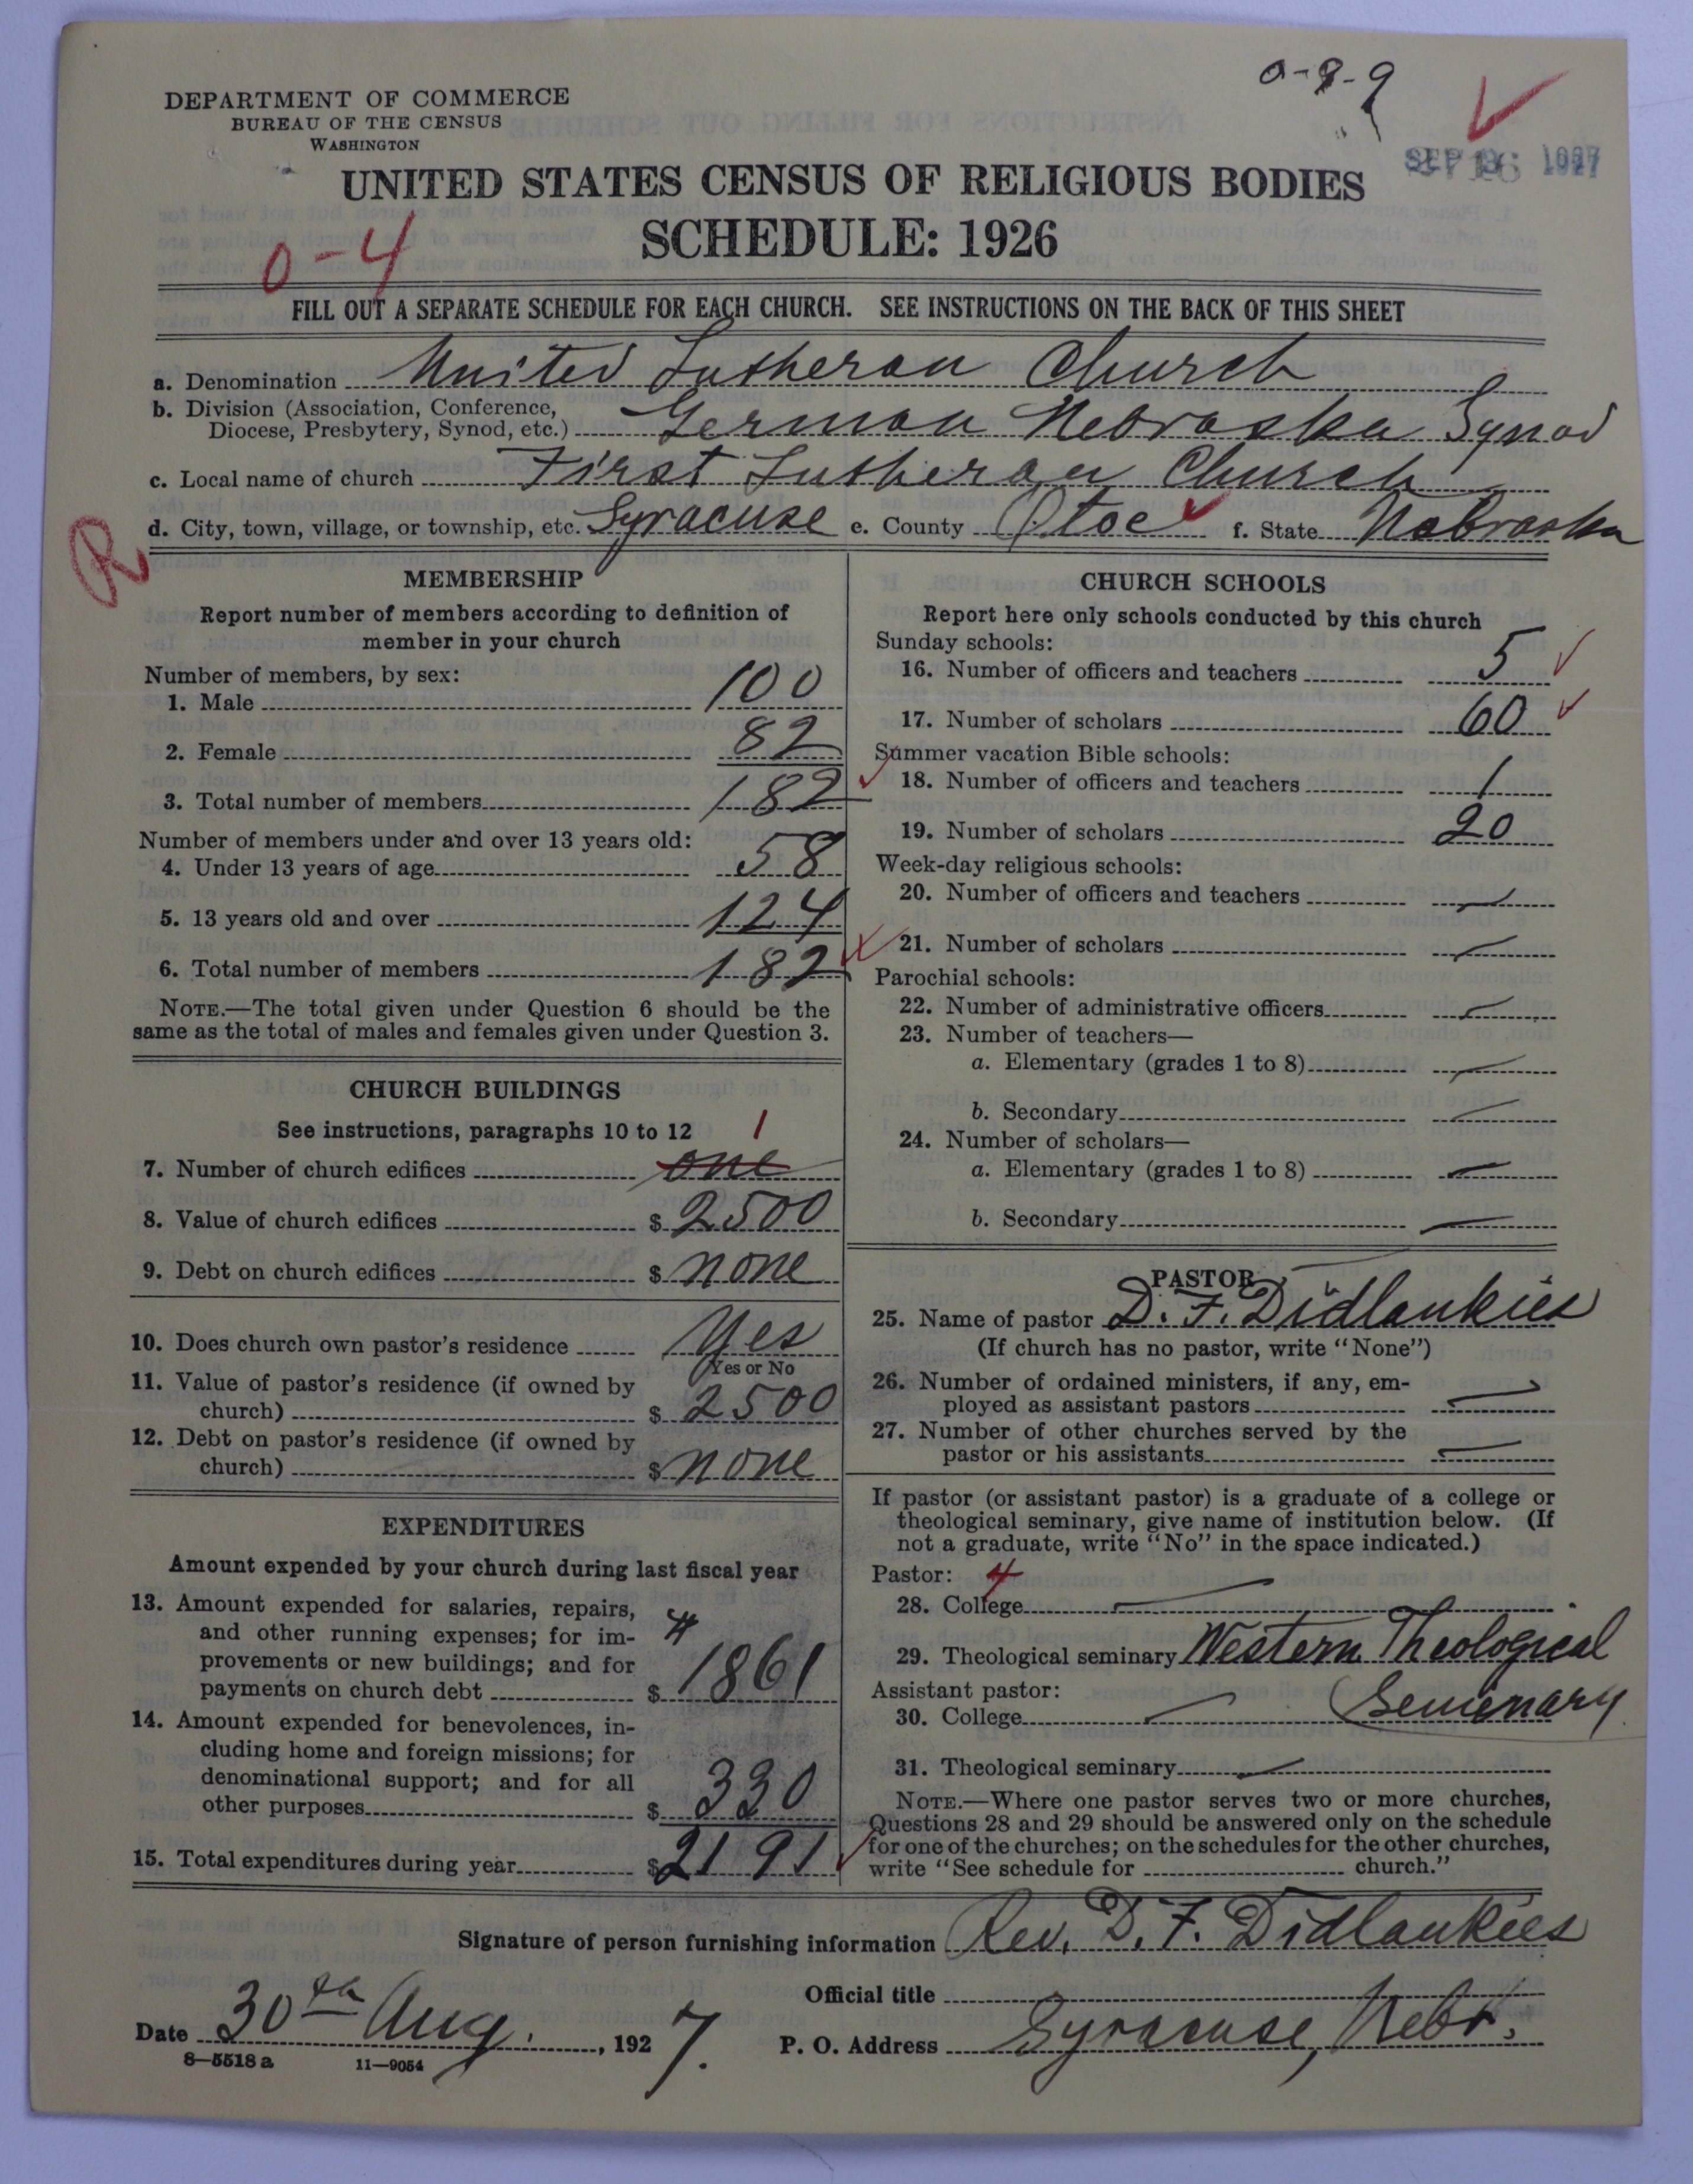 0-8-9
DEPARTMENT OF COMMERCE
BUREAU OF THE CENSUS
WASHINGTON
UNITED STATES CENSUS OF RELIGIOUS BODIES
SCHEDULE: 1926
0-4
FILL OUT A SEPARATE SCHEDULE FOR EACH CHURCH. SEE INSTRUCTIONS ON THE BACK OF THIS SHEET
a. Denomination United Lutheran Church
b. Division (Association, Conference,
Diocese, Presbytery, Synod, etc.) German Nebraska Synod
c. Local name of church First Lutheran Church
d. City, town, village, or township, etc. Syracuse e. County Otoe f. State Nebraska
R
MEMBERSHIP
Report number of members according to definition of
member in your church
Number of members, by sex:
1. Male 100
2. Female 82
3. Total number of members 182
Number of members under and over 13 years old:
4. Under 13 years of age 58
5. 13 years old and over 124
6. Total number of members 182
NOTE.—The total given under Question 6 should be the
same as the total of males and females given under Question 3.
CHURCH BUILDINGS
See instructions, paragraphs 10 to 12
1
7. Number of church edifices one
8. Value of church edifices $ 2500
9. Debt on church edifices $ none
10. Does church own pastor's residence Yes
Yes or No
11. Value of pastor's residence (if owned by
church) $ 2500
12. Debt on pastor's residence (if owned by
church) $ none
EXPENDITURES
Amount expended by your church during last fiscal year
13. Amount expended for salaries, repairs,
and other running expenses; for im-
provements or new buildings; and for
payments on church debt $ 1861
14. Amount expended for benevolences, in-
cluding home and foreign missions; for
denominational support; and for all
other purposes $ 330
15. Total expenditures during year $ 2191
CHURCH SCHOOLS
Report here only schools conducted by this church
Sunday schools:
16. Number of officers and teachers 5
17. Number of scholars 60
Summer vacation Bible schools:
18. Number of officers and teachers 1
19. Number of scholars 20
Week-day religious schools:
20. Number of officers and teachers —
21. Number of scholars —
Parochial schools:
22. Number of administrative officers —
23. Number of teachers—
a. Elementary (grades 1 to 8) —
b. Secondary —
24. Number of scholars—
a. Elementary (grades 1 to 8) —
b. Secondary —
PASTOR
25. Name of pastor D. F. Didlaukies
(If church has no pastor, write "None")
26. Number of ordained ministers, if any, em-
ployed as assistant pastors —
27. Number of other churches served by the
pastor or his assistants —
If pastor (or assistant pastor) is a graduate of a college or
theological seminary, give name of institution below. (If
not a graduate, write "No" in the space indicated.)
Pastor: 4
28. College —
29. Theological seminary Western Theological
Assistant pastor: Semenary
30. College —
31. Theological seminary —
NOTE.—Where one pastor serves two or more churches,
Questions 28 and 29 should be answered only on the schedule
for one of the churches; on the schedules for the other churches,
write "See schedule for church."
Signature of person furnishing information Rev. D. F. Didlaukies
Official title
Date 30th Aug., 1927. P. O. Address Syracuse, Nebr.
8—5518 a 11—9054